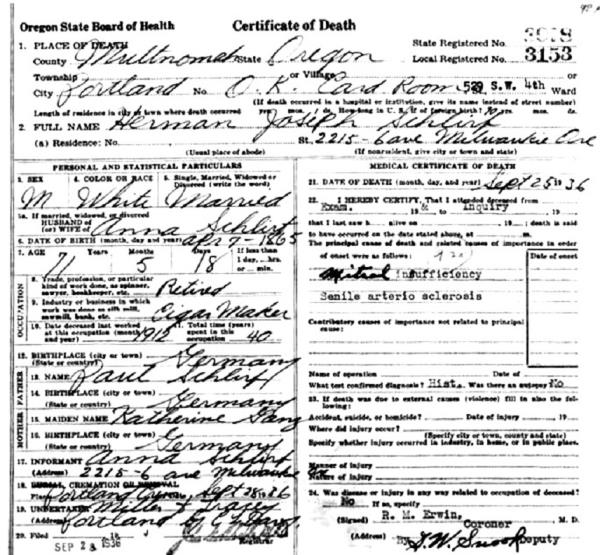 Oregon State Board of Health
Certificate of Death
1. PLACE OF DEATH
State Registered No.
County Multnomah State Oregon
Local Registered No. 3153
Township or Village
City Portland No. O.K. Card Room 529 S.W. 4th Ward
(If death occurred in a hospital or institution, give its name instead of street number)
Length of residence in city or town where death occurred yrs. mos. ds. How long in U. S. if of foreign birth? yrs. mos. ds.
2. FULL NAME Herman Joseph Schlirf
(a) Residence: No. St. 2215-6 ave Milwaukie Ore
(Usual place of abode) (If nonresident, give city or town and state)
PERSONAL AND STATISTICAL PARTICULARS
3. SEX 4. COLOR OR RACE 5. Single, Married, Widowed or Divorced (write the word)
M White Married
5a. If married, widowed, or divorced
HUSBAND of
(or) WIFE of Anna Schlirf
6. DATE OF BIRTH (month, day and year) Apr 7 - 1865
7. AGE Years Months Days If less than 1 day, hrs. or min.
71 5 18
OCCUPATION
8. Trade, profession, or particular kind of work done, as spinner, sawyer, bookkeeper, etc. Retired
9. Industry or business in which work was done as silk mill, sawmill, bank, etc. Cigar Maker
10. Date deceased last worked at this occupation (month and year) 1912 11. Total time (years) spent in this occupation 40
12. BIRTHPLACE (city or town)
(State or country) Germany
FATHER
13. NAME Paul Schlirf
14. BIRTHPLACE (city or town)
(State or country) Germany
MOTHER
15. MAIDEN NAME Katherine
16. BIRTHPLACE (city or town)
(State or country) Germany
17. INFORMANT Anna Schlirf
(Address) 2215-6 ave Milwaukie
18. BURIAL, CREMATION OR REMOVAL
Place Portland Crem. Sept 28 1936
19. UNDERTAKER Miller & Tracey
(Address) Portland
20. Filed SEP 28 1936
Registrar
MEDICAL CERTIFICATE OF DEATH
21. DATE OF DEATH (month, day, and year) Sept 25 1936
22. I HEREBY CERTIFY, That I attended deceased from
Exam. 19 to & Inquiry 19
that I last saw h alive on 19 death is said
to have occurred on the date stated above, at m.
The principal cause of death and related causes of importance in order
of onset were as follows:
Date of onset
Mitral insufficiency
Senile arterio sclerosis
Contributory causes of importance not related to principal
cause:
Name of operation Date of
What test confirmed diagnosis? Hist. Was there an autopsy No
23. If death was due to external causes (violence) fill in also the following:
Accident, suicide, or homicide? Date of injury 19
Where did injury occur?
(Specify city or town, county and state)
Specify whether injury occurred in industry, in home, or in public place.
Manner of injury
Nature of injury
24. Was disease or injury in any way related to occupation of deceased?
No If so, specify
(Signed) R. M. Erwin, M. D.
Coroner
By Deputy